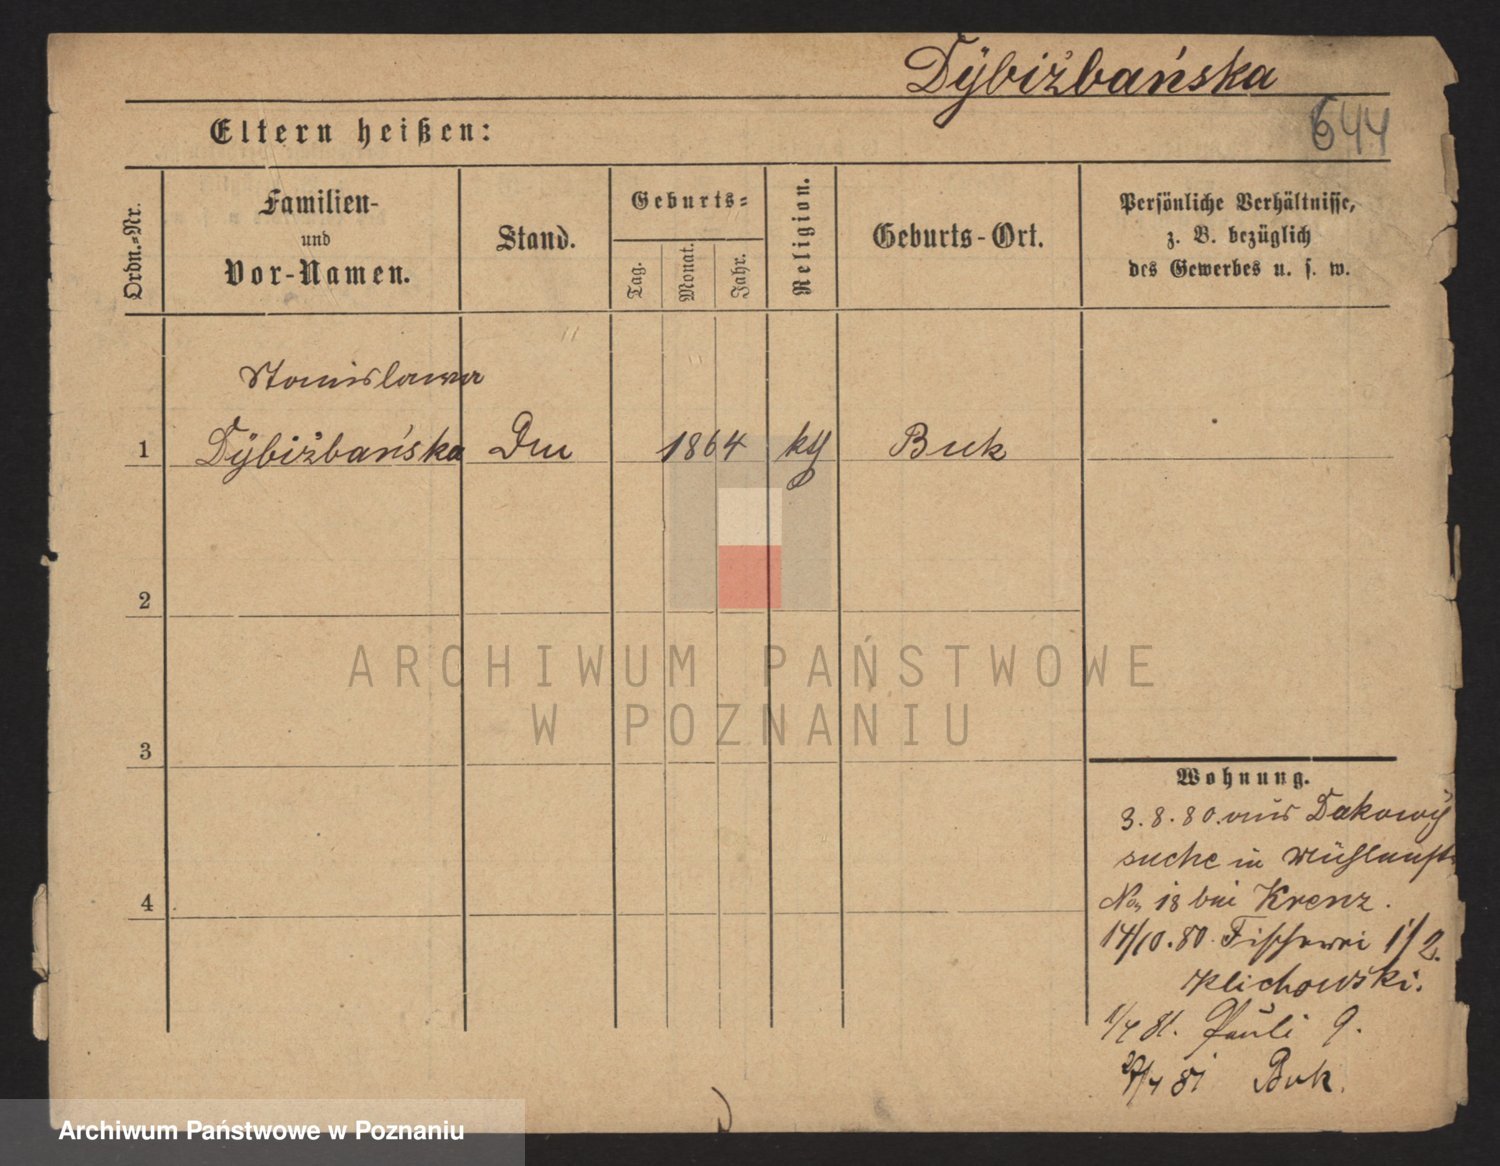 Dÿbiżbańska
644
Eltern heißen:
Ordn.-Nr.
Familien-
und
Vor-Namen.
Stand.
Geburts-
Tag.
Monat.
Jahr.
Religion.
Geburts-Ort.
Persönliche Verhältnisse,
z. B. bezüglich
des Gewerbes u. s. w.
Stanislawa
1 Dÿbiżbańska 1864 Buk
2
3
4
ARCHIWUM PAŃSTWOWE
W POZNANIU
Wohnung.
3.8.80. aus Dakowÿ
suche in
No 18 bei Krenz.
14/10.80. Fischerei 1/2.
Klichowski.
1/4 81. Pauli 9.
27/4 81 Buk.
Archiwum Państwowe w Poznaniu